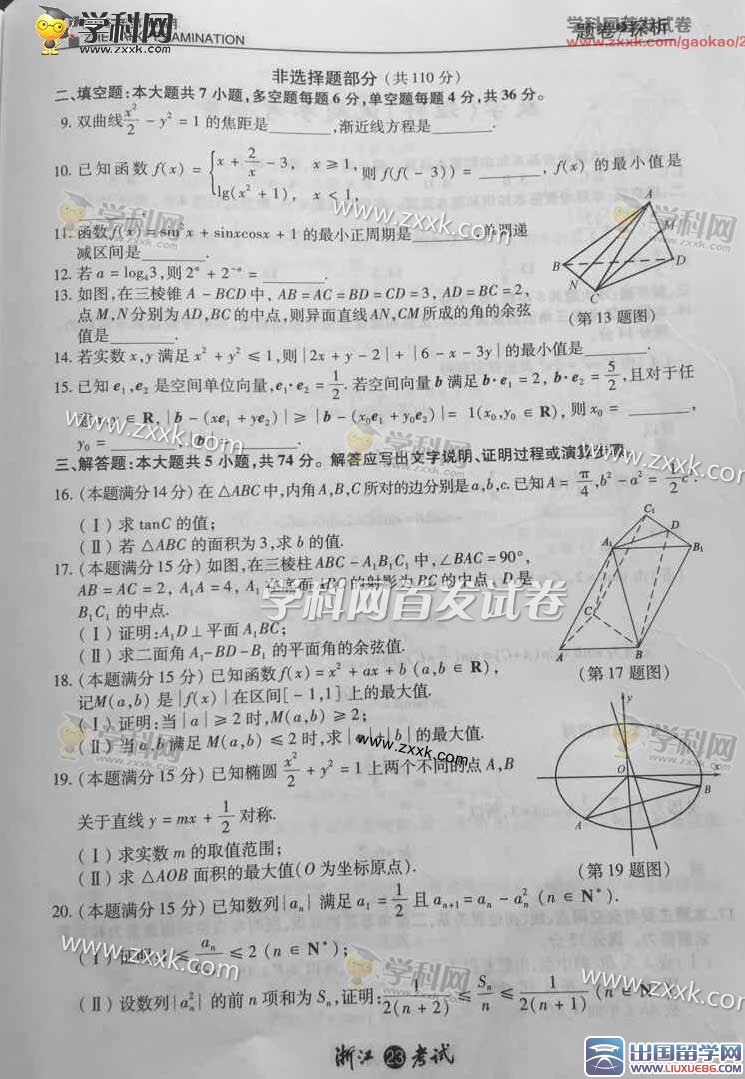 学科网
www.zxxk.com
EXAMINATION
学科网首发试卷
题卷 探析
www.zxxk.com/gaokao/2
非选择题部分(共110分)
二、填空题:本大题共7小题,多空题每题6分,单空题每题4分,共36分。
9. 双曲线 x²/2 - y² = 1 的焦距是______,渐近线方程是______.
10. 已知函数 f(x) = { x + 2/x - 3, x ≥ 1, lg(x² + 1), x < 1, 则 f(f(-3)) = ______, f(x) 的最小值是
______.
11. 函数 f(x) = sin²x + sinxcosx + 1 的最小正周期是______,单调递
减区间是______.
12. 若 a = log₄3,则 2ᵃ + 2⁻ᵃ = ______.
13. 如图,在三棱锥 A - BCD 中, AB = AC = BD = CD = 3, AD = BC = 2,
点 M,N 分别为 AD,BC 的中点,则异面直线 AN,CM 所成的角的余弦
值是______.
A
M
B
D
N
C
(第13题图)
14. 若实数 x,y 满足 x² + y² ≤ 1,则 |2x + y - 2| + |6 - x - 3y| 的最小值是______.
15. 已知 e₁,e₂ 是空间单位向量,e₁·e₂ = 1/2. 若空间向量 b 满足 b·e₁ = 2, b·e₂ = 5/2,且对于任
x,y ∈ R, |b - (xe₁ + ye₂)| ≥ |b - (x₀e₁ + y₀e₂)| = 1(x₀,y₀ ∈ R), 则 x₀ = ______,
y₀ = ______, |b| = ______.
三、解答题:本大题共5小题,共74分。解答应写出文字说明、证明过程或演算步骤.
16. (本题满分14分) 在△ABC中,内角A,B,C所对的边分别是a,b,c. 已知A = π/4, b² - a² = 1/2 c².
(Ⅰ) 求 tanC 的值;
(Ⅱ) 若 △ABC 的面积为 3,求 b 的值.
17. (本题满分 15 分) 如图,在三棱柱 ABC - A₁B₁C₁ 中, ∠BAC = 90°,
AB = AC = 2, A₁A = 4, A₁ 在底面 ABC 的射影为 BC 的中点, D 是
B₁C₁ 的中点.
(Ⅰ) 证明:A₁D ⊥ 平面 A₁BC;
(Ⅱ) 求二面角 A₁-BD-B₁ 的平面角的余弦值.
C₁
D
A₁
B₁
C
A
B
(第17题图)
学科网首发试卷
18. (本题满分 15 分) 已知函数 f(x) = x² + ax + b (a,b ∈ R),
记M(a,b) 是 |f(x)| 在区间[-1,1] 上的最大值.
(Ⅰ) 证明:当 |a| ≥ 2 时,M(a,b) ≥ 2;
(Ⅱ) 当 a,b 满足 M(a,b) ≤ 2 时,求 |a| + |b| 的最大值.
19. (本题满分 15 分) 已知椭圆 x²/2 + y² = 1 上两个不同的点 A,B
关于直线 y = mx + 1/2 对称.
(Ⅰ) 求实数 m 的取值范围;
(Ⅱ) 求 △AOB 面积的最大值(O 为坐标原点).
y
O
x
B
A
(第19题图)
20. (本题满分15分) 已知数列{aₙ} 满足 a₁ = 1/2 且 aₙ₊₁ = aₙ - aₙ² (n ∈ N*).
(Ⅰ) 证明:1 ≤ aₙ/ ≤ 2 (n ∈ N*);
(Ⅱ) 设数列{aₙ²} 的前 n 项和为 Sₙ,证明:1/2(n + 2) ≤ Sₙ/n ≤ 1/2(n + 1) (n ∈ N*).
浙江 23 考试
出国留学网
www.liuxue86.com